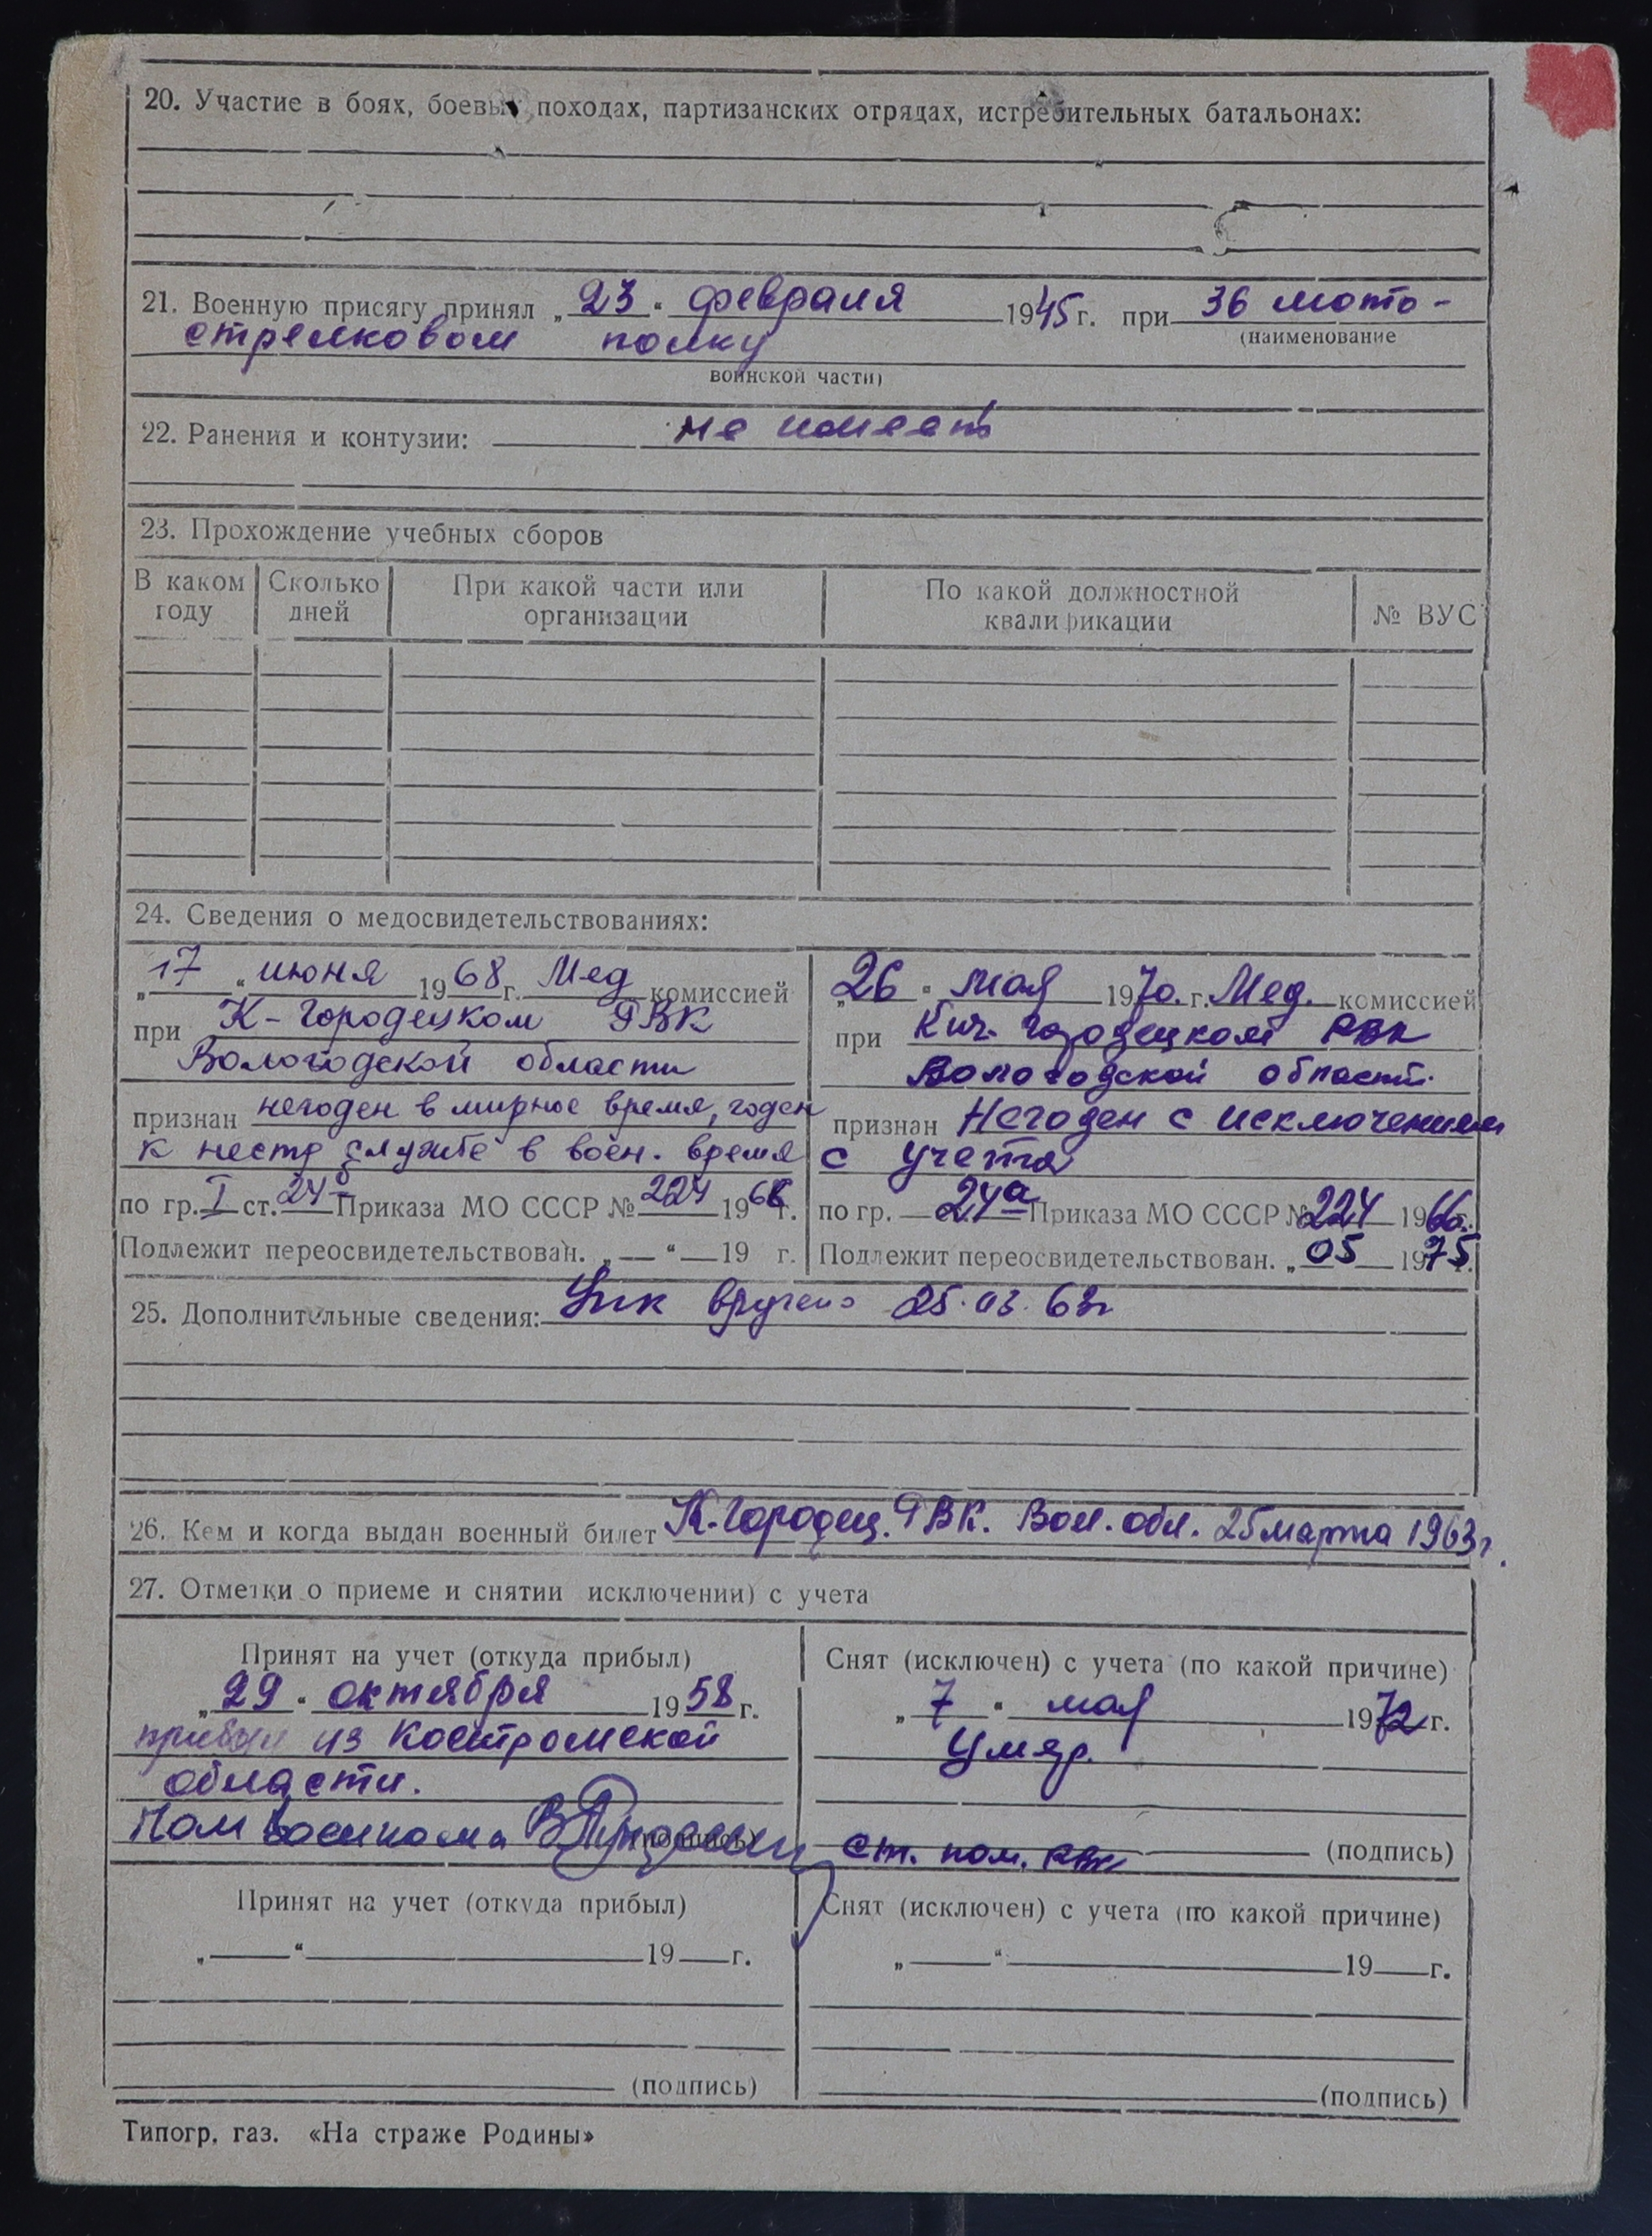 20. Участие в боях, боевых походах, партизанских отрядах, истребительных батальонах:
21. Военную присягу принял „23“ февраля 1945 г. при 36 мото-
(наименование
стрелковом полку
воинской части)
22. Ранения и контузии: не имеет
23. Прохождение учебных сборов
В каком году | Сколько дней | При какой части или организации | По какой должностной квалификации | № ВУС
24. Сведения о медосвидетельствованиях:
„17“ июня 1968 г. Мед комиссией
при К-Городецком РВК
Вологодской области
признан негоден в мирное время, годен
к нестр службе в воен. время
по гр. I ст. 24б Приказа МО СССР № 224 1966 г.
Подлежит переосвидетельствован. „—“ — 19 г.
„26“ мая 1970. г. Мед. комиссией
при Кич-Городецком РВК
Вологодской области.
признан Негоден с исключением
с учета
по гр. — 24а Приказа МО СССР № 224 1966 г.
Подлежит переосвидетельствован. „05 1975 г.
25. Дополнительные сведения: вручено 25.03.63г
26. Кем и когда выдан военный билет К-Городец. РВК. Вол. обл. 25 марта 1963 г.
27. Отметки о приеме и снятии исключении) с учета
Принят на учет (откуда прибыл)
„29“ октября 1958 г.
прибыл из Костромской
области.
Пом военкома
(подпись)
Снят (исключен) с учета (по какой причине)
„7“ мая 1972 г.
Умер.
ст. пом. РВК (подпись)
Принят на учет (откуда прибыл)
„—“ — 19 — г.
(подпись)
Снят (исключен) с учета (по какой причине)
„—“ — 19 — г.
(подпись)
Типогр. газ. «На страже Родины»